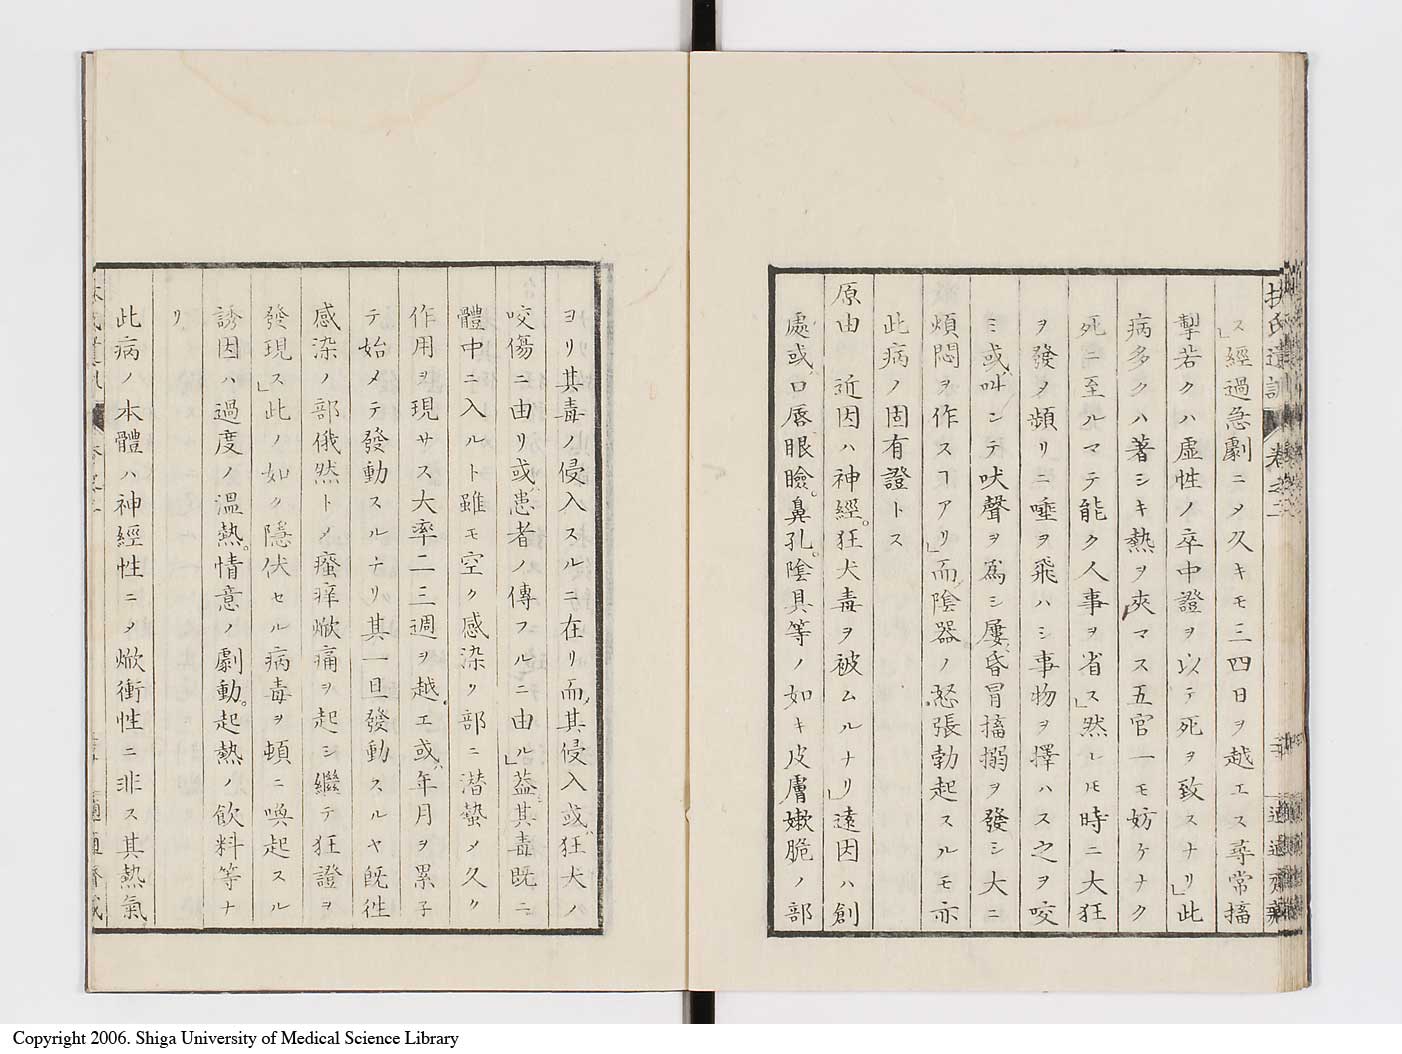 扶氏遺訓 卷之二
ス」經過急劇ニメ久キモ三四日ヲ越エス尋常搐
掣若クハ虚性ノ卒中證ヲ以テ死ヲ致スナリ」此
病多クハ著シキ熱ヲ夾マス五官一モ妨ケナク
死ニ至ルマテ能ク人事ヲ省ス」然レ𪜈時ニ大狂
ヲ發メ頻リニ唾ヲ飛ハシ事物ヲ擇ハス之ヲ咬
ミ或叫ンテ吠聲ヲ爲シ屢昏冒搐搦ヲ發シ大ニ
煩悶ヲ作スヿアリ」而陰器ノ怒張勃起スルモ亦
此病ノ固有證トス
原由 近因ハ神經。狂犬毒ヲ被ムルナリ」遠因ハ創
處或口唇眼瞼。鼻孔。陰具等ノ如キ皮膚嫩脆ノ部
ヨリ其毒ノ侵入スルニ在リ而其侵入或狂犬ノ
咬傷ニ由リ或患者ノ傳フルニ由ル」蓋其毒既ニ
體中ニ入ルト雖モ空ク感染ノ部ニ潜蟄メ久ク
作用ヲ現サス大率二三週ヲ越エ或年月ヲ累子
テ始メテ發動スルナリ其一旦發動スルヤ既徃
感染ノ部俄然トメ瘙痒焮痛ヲ起シ繼テ狂證ヲ
發現ス」此ノ如ク隱伏セル病毒ヲ頓ニ喚起スル
誘因ハ過度ノ溫熱。情意ノ劇動。起熱ノ飲料等ナ
リ
此病ノ本體ハ神經性ニメ焮衝性ニ非ス其熱氣
Copyright 2006. Shiga University of Medical Science Library